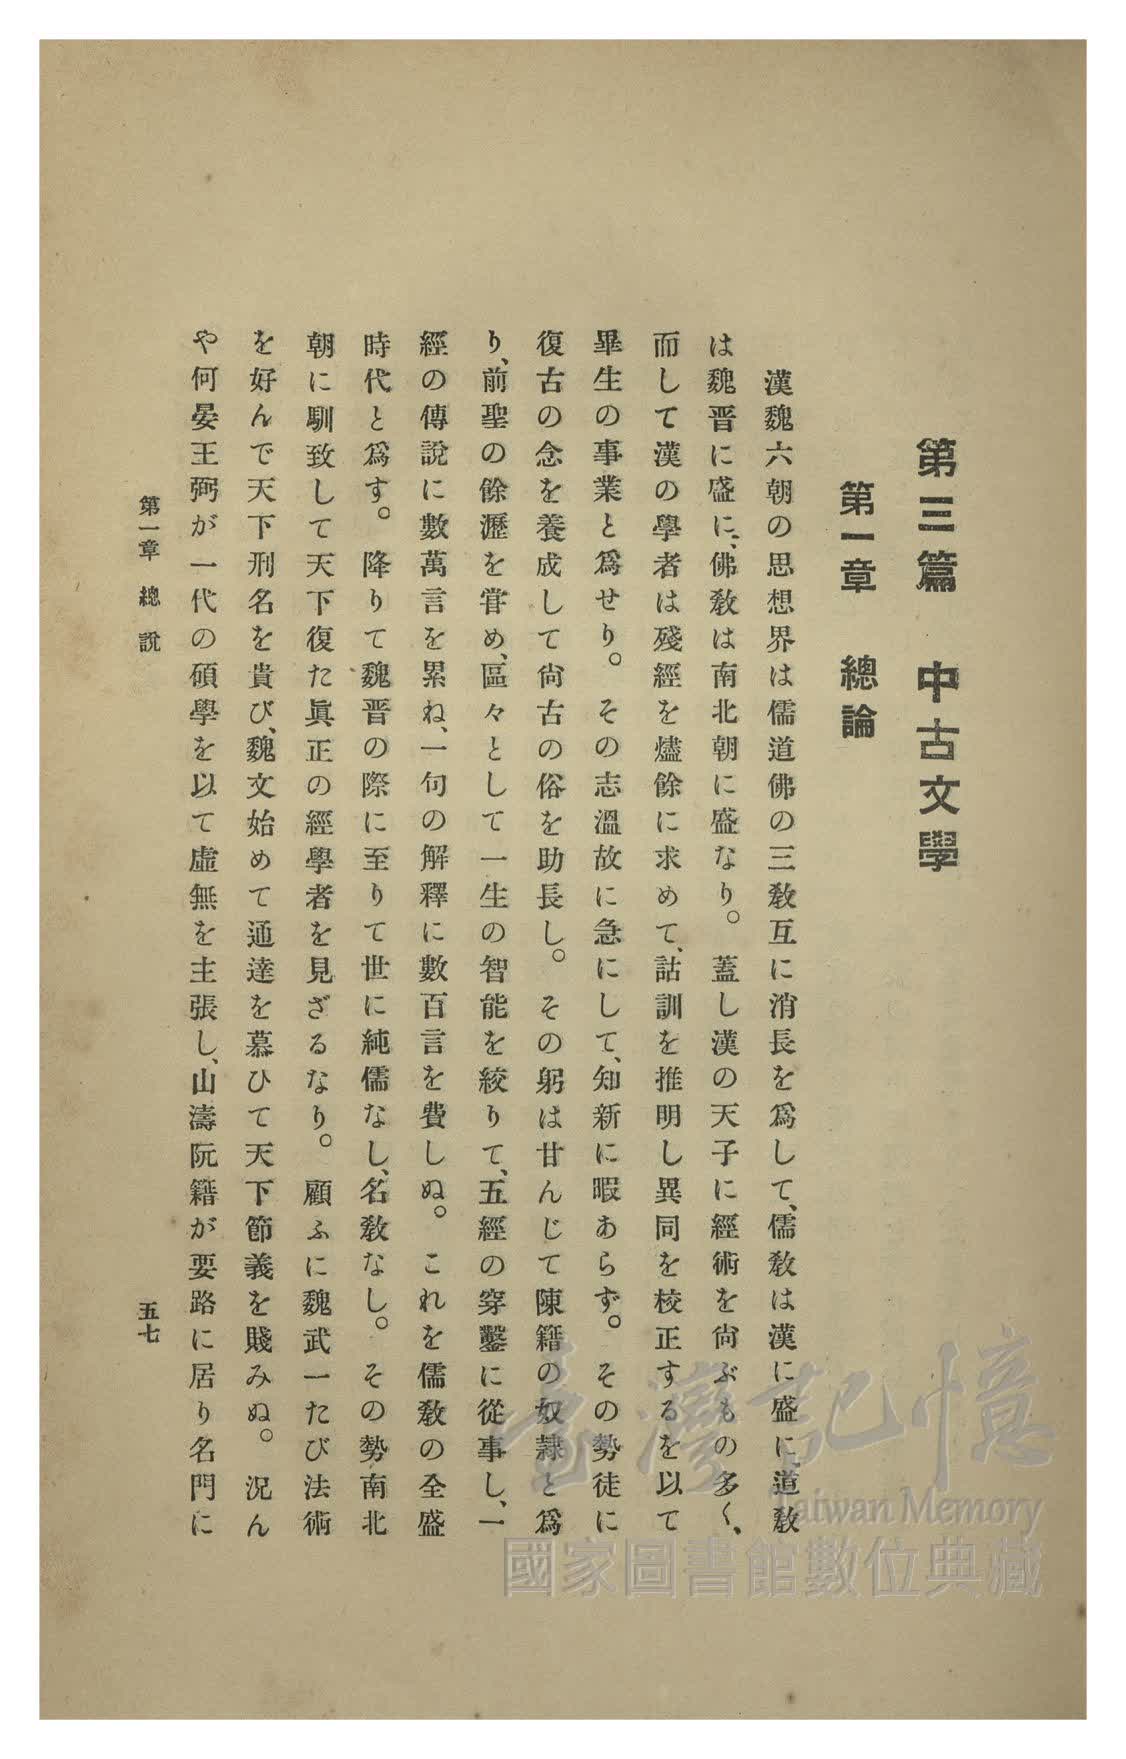 第三篇　中古文學
第一章　總論
漢魏六朝の思想界は儒道佛の三敎互に消長を爲して、儒敎は漢に盛に、道敎
は魏晋に盛に、佛敎は南北朝に盛なり。蓋し漢の天子に經術を尙ぶもの多く、
而して漢の學者は殘經を燼餘に求めて、詁訓を推明し異同を校正するを以て
畢生の事業と爲せり。その志溫故に急にして、知新に暇あらず。その勢徒に
復古の念を養成して尙古の俗を助長し。その躬は甘んじて陳籍の奴隷と爲
り、前聖の餘瀝を甞め、區々として一生の智能を絞りて、五經の穿鑿に從事し、一
經の傳說に數萬言を累ね、一句の解釋に數百言を費しぬ。これを儒敎の全盛
時代と爲す。降りて魏晋の際に至りて世に純儒なし、名敎なし。その勢南北
朝に馴致して天下復た眞正の經學者を見ざるなり。顧ふに魏武一たび法術
を好んで天下刑名を貴び、魏文始めて通達を慕ひて天下節義を賤みぬ。況ん
や何晏王弼が一代の碩學を以て虛無を主張し、山濤阮籍が要路に居り名門に
第一章　總說
五七
臺灣記憶
Taiwan Memory
國家圖書館數位典藏